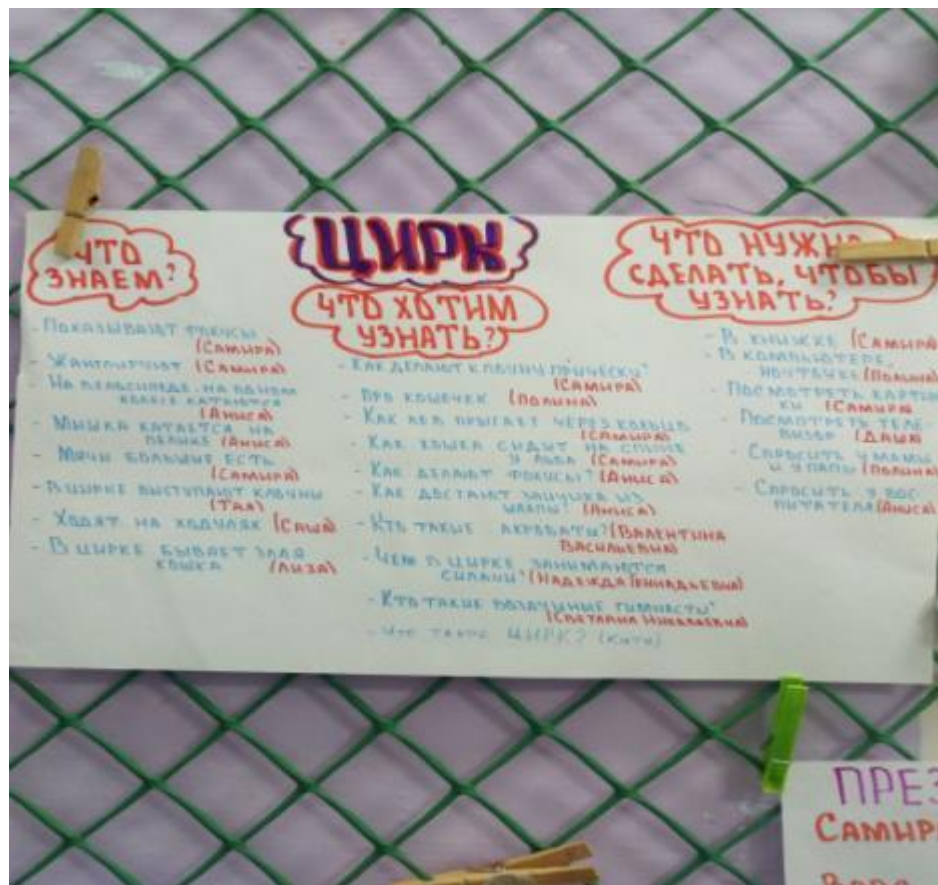 ЦИРК
ЧТО
ЗНАЕМ?
- ПОКАЗЫВАЮТ ФОКУСЫ
(САМИРА)
- ЖАНГЛИРУЮТ (САМИРА)
- НА ВЕЛОСИПЕДЕ НА ОДНОМ
КОЛЕСЕ КАТАЮТСЯ
(АНИСА)
- МИШКА КАТАЕТСЯ НА
(АНИСА)
- МЯЧИ БОЛЬШИЕ ЕСТЬ
(САМИРА)
- В ЦИРКЕ ВЫСТУПАЮТ КЛОУНЫ
(ТАЯ)
- ХОДЯТ НА ХОДУЛЯХ (САША)
- В ЦИРКЕ БЫВАЕТ ЗЛАЯ
КОШКА (ЛИЗА)
ЧТО ХОТИМ
УЗНАТЬ?
- КАК ДЕЛАЮТ КЛОУНУ ПРИЧЕСКУ?
(САМИРА)
- ПРО КОШЕЧЕК (ПОЛИНА)
- КАК ЛЕВ ПРЫГАЕТ ЧЕРЕЗ КОЛЬЦО
(САМИРА)
- КАК КОШКА СИДИТ НА СПИНЕ
У ЛЬВА (САМИРА)
- КАК ДЕЛАЮТ ФОКУСЫ? (АНИСА)
- КАК ДОСТАЮТ ЗАЙЧИКА ИЗ
ШЛЯПЫ? (АНИСА)
- КТО ТАКИЕ АКРОБАТЫ? (ВАЛЕНТИНА
ВАСИЛЬЕВНА)
- ЧЕМ В ЦИРКЕ ЗАНИМАЮТСЯ
СИЛАЧИ? (НАДЕЖДА ГЕННАДЬЕВНА)
- КТО ТАКИЕ ВОЗДУШНЫЕ ГИМНАСТЫ?
(СВЕТЛАНА НИКОЛАЕВНА)
- ЧТО ТАКОЕ ЦИРК? (КАТЯ)
ЧТО НУЖНО
СДЕЛАТЬ, ЧТОБЫ
УЗНАТЬ?
- В КНИЖКЕ (САМИРА)
- В КОМПЬЮТЕРЕ,
НОУТБУКЕ (ПОЛИНА)
- ПОСМОТРЕТЬ КАРТИН
КИ (САМИРА
- ПОСМОТРЕТЬ ТЕЛЕ-
ВИЗОР (ДАША
- СПРОСИТЬ У МАМЫ
И У ПАПЫ (ПОЛИНА)
- СПРОСИТЬ У ВОС-
ПИТАТЕЛЯ (АНИСА)
ПРЕЗ
САМИР